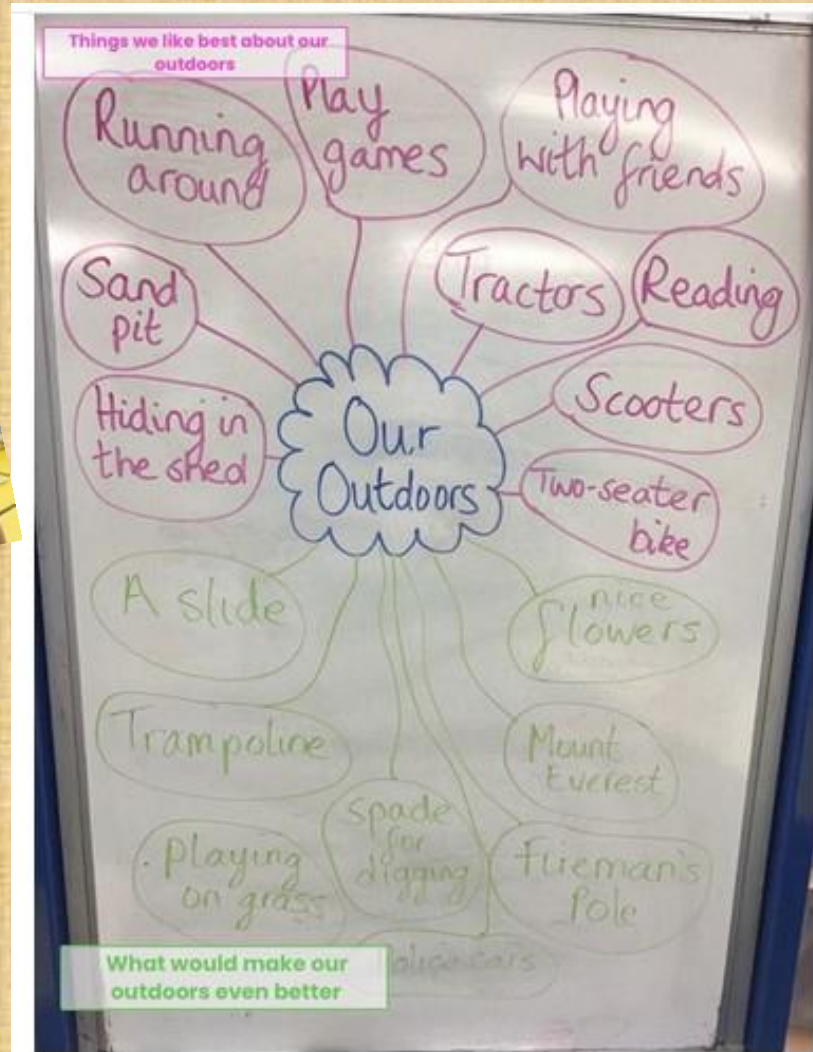 Things we like best about our
outdoors
Running
around
Play
games
Playing
with friends
Sand
pit
Tractors
Reading
Hiding in
the shed
Our
Outdoors
Scooters
Two-seater
bike
A slide
nice
flowers
Trampoline
Mount
Everest
Spade
for
digging
Playing
on grass
fireman's
Pole
What would make our
outdoors even better